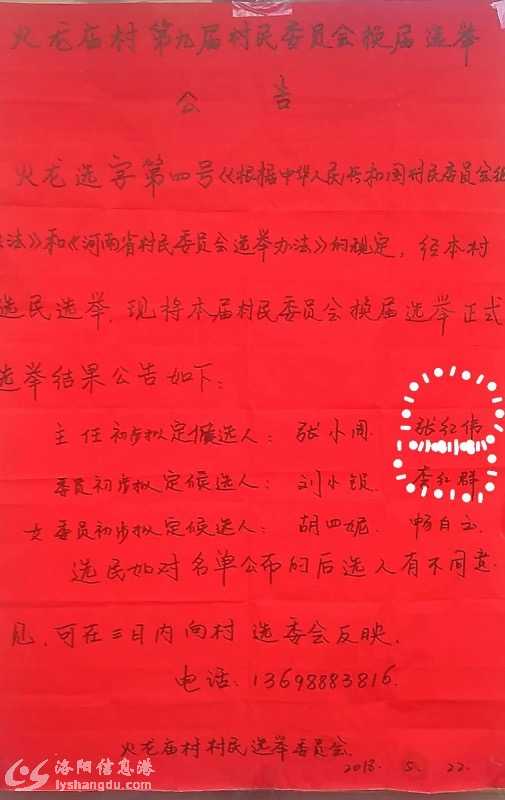 火龙庙村第九届村民委员会换届选举
公 告
火龙选字第四号《根据中华人民共和国村民委员会组
织法》和《河南省村民委员会选举办法》的规定，经本村
选民选举，现将本届村民委员会换届选举正式
选举结果公告如下：
主任初步拟定候选人：张小周 张红伟
委员初步拟定候选人：刘小锁 李红群
女委员初步拟定候选人：胡四妮 畅自立
选民如对名单公布的后选人有不同意
见，可在三日内向村选委会反映。
电话：13698883816
火龙庙村村民选举委员会
2018. 5. 22.
洛阳信息港
lyshangdu.com